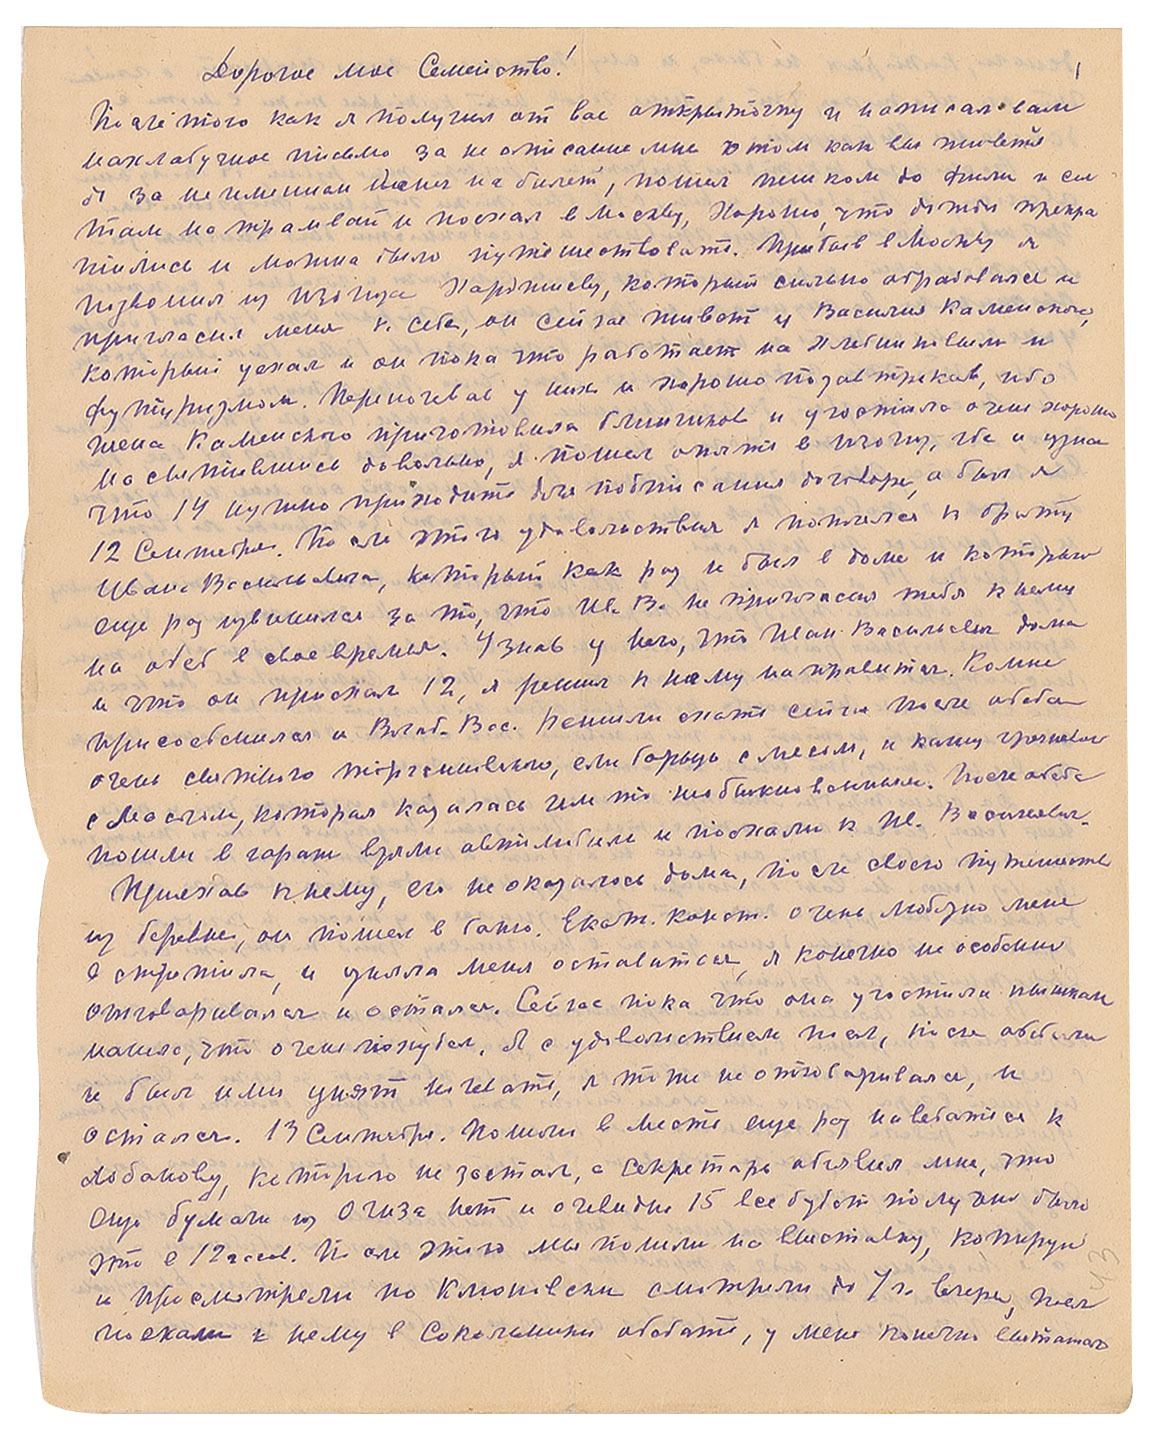 Дорогое мое Семейство! 1
После того как я получил от вас открыточку и написал вам
нахлабучное письмо за не описание мне о том как вы живете
я за неимением денег на билет, пошел пешком до Фили и сел
там на трамвай и поехал в Москву, Хорошо, что дожди прекра
тились и можна было путешествовать. Прибыв в Москву я
позвонил из изогиза Харджиеву, который сильно обрадовался и
пригласил меня к себе, он сейчас живет у Василия Каменского,
который уехал и он пока что работает на Хлебниковым и
футуризмом. Переночевав у них и хорошо позавтракав, ибо
жена Каменского приготовила блинчиков и угостила очень хорошо
насытившись довольно, я пошел опять в изогиз, где и узнал
что 14 нужно приходить для подписания договора, а был я
12 Сентября. После этого удовольствия я поплелся к брату
Ивана Васильевича, который как раз и был в доме и который
еще раз извинился за то, что Ив. В. не пригласил тебя к нему
на обед в свое время. Узнав у него, что Иван Васильевич дома
и что он приехал 12, я решил к нему направится. Ко мне
присоебинился и Влад. Вас. решили ехать сейчас после обеда
очень сытного торгсиновского, ели борщь с мясом, и кашу гречневою
с маслом, которая казалась чем то необыкновенным. После обеда
пошли в гараж взяли автомобиль и поехали к Ив. Васильевич.
Приехав к нему, его не оказалось дома, после своего путешеств
из деревни, он пошел в баню. Екат. Конст. очень любезно меня
встретила, и уняла меня оставаться, я конечно не особенно
отговаривался и остался. Сейчас пока что она угостила пышкам
маисо, что очень полюбил. Я с удовольствием поел, после обедали
и был ими унят ночевать, я тоже не отговаривался, и
остался. 13 Сентября. Пошли в место еще раз наведаться к
Лобанову, которого не застал, а секретарь объявил мне, что
еще бумаги из Огиза нет и очевидно 15 все будет получено было
это в 12 часов. После этого мы пошли на выставку,
и просмотрели по Ключевски смотрели до 7 ч. вечера,
поехали к нему в Сокольники обедать, у меня конечно